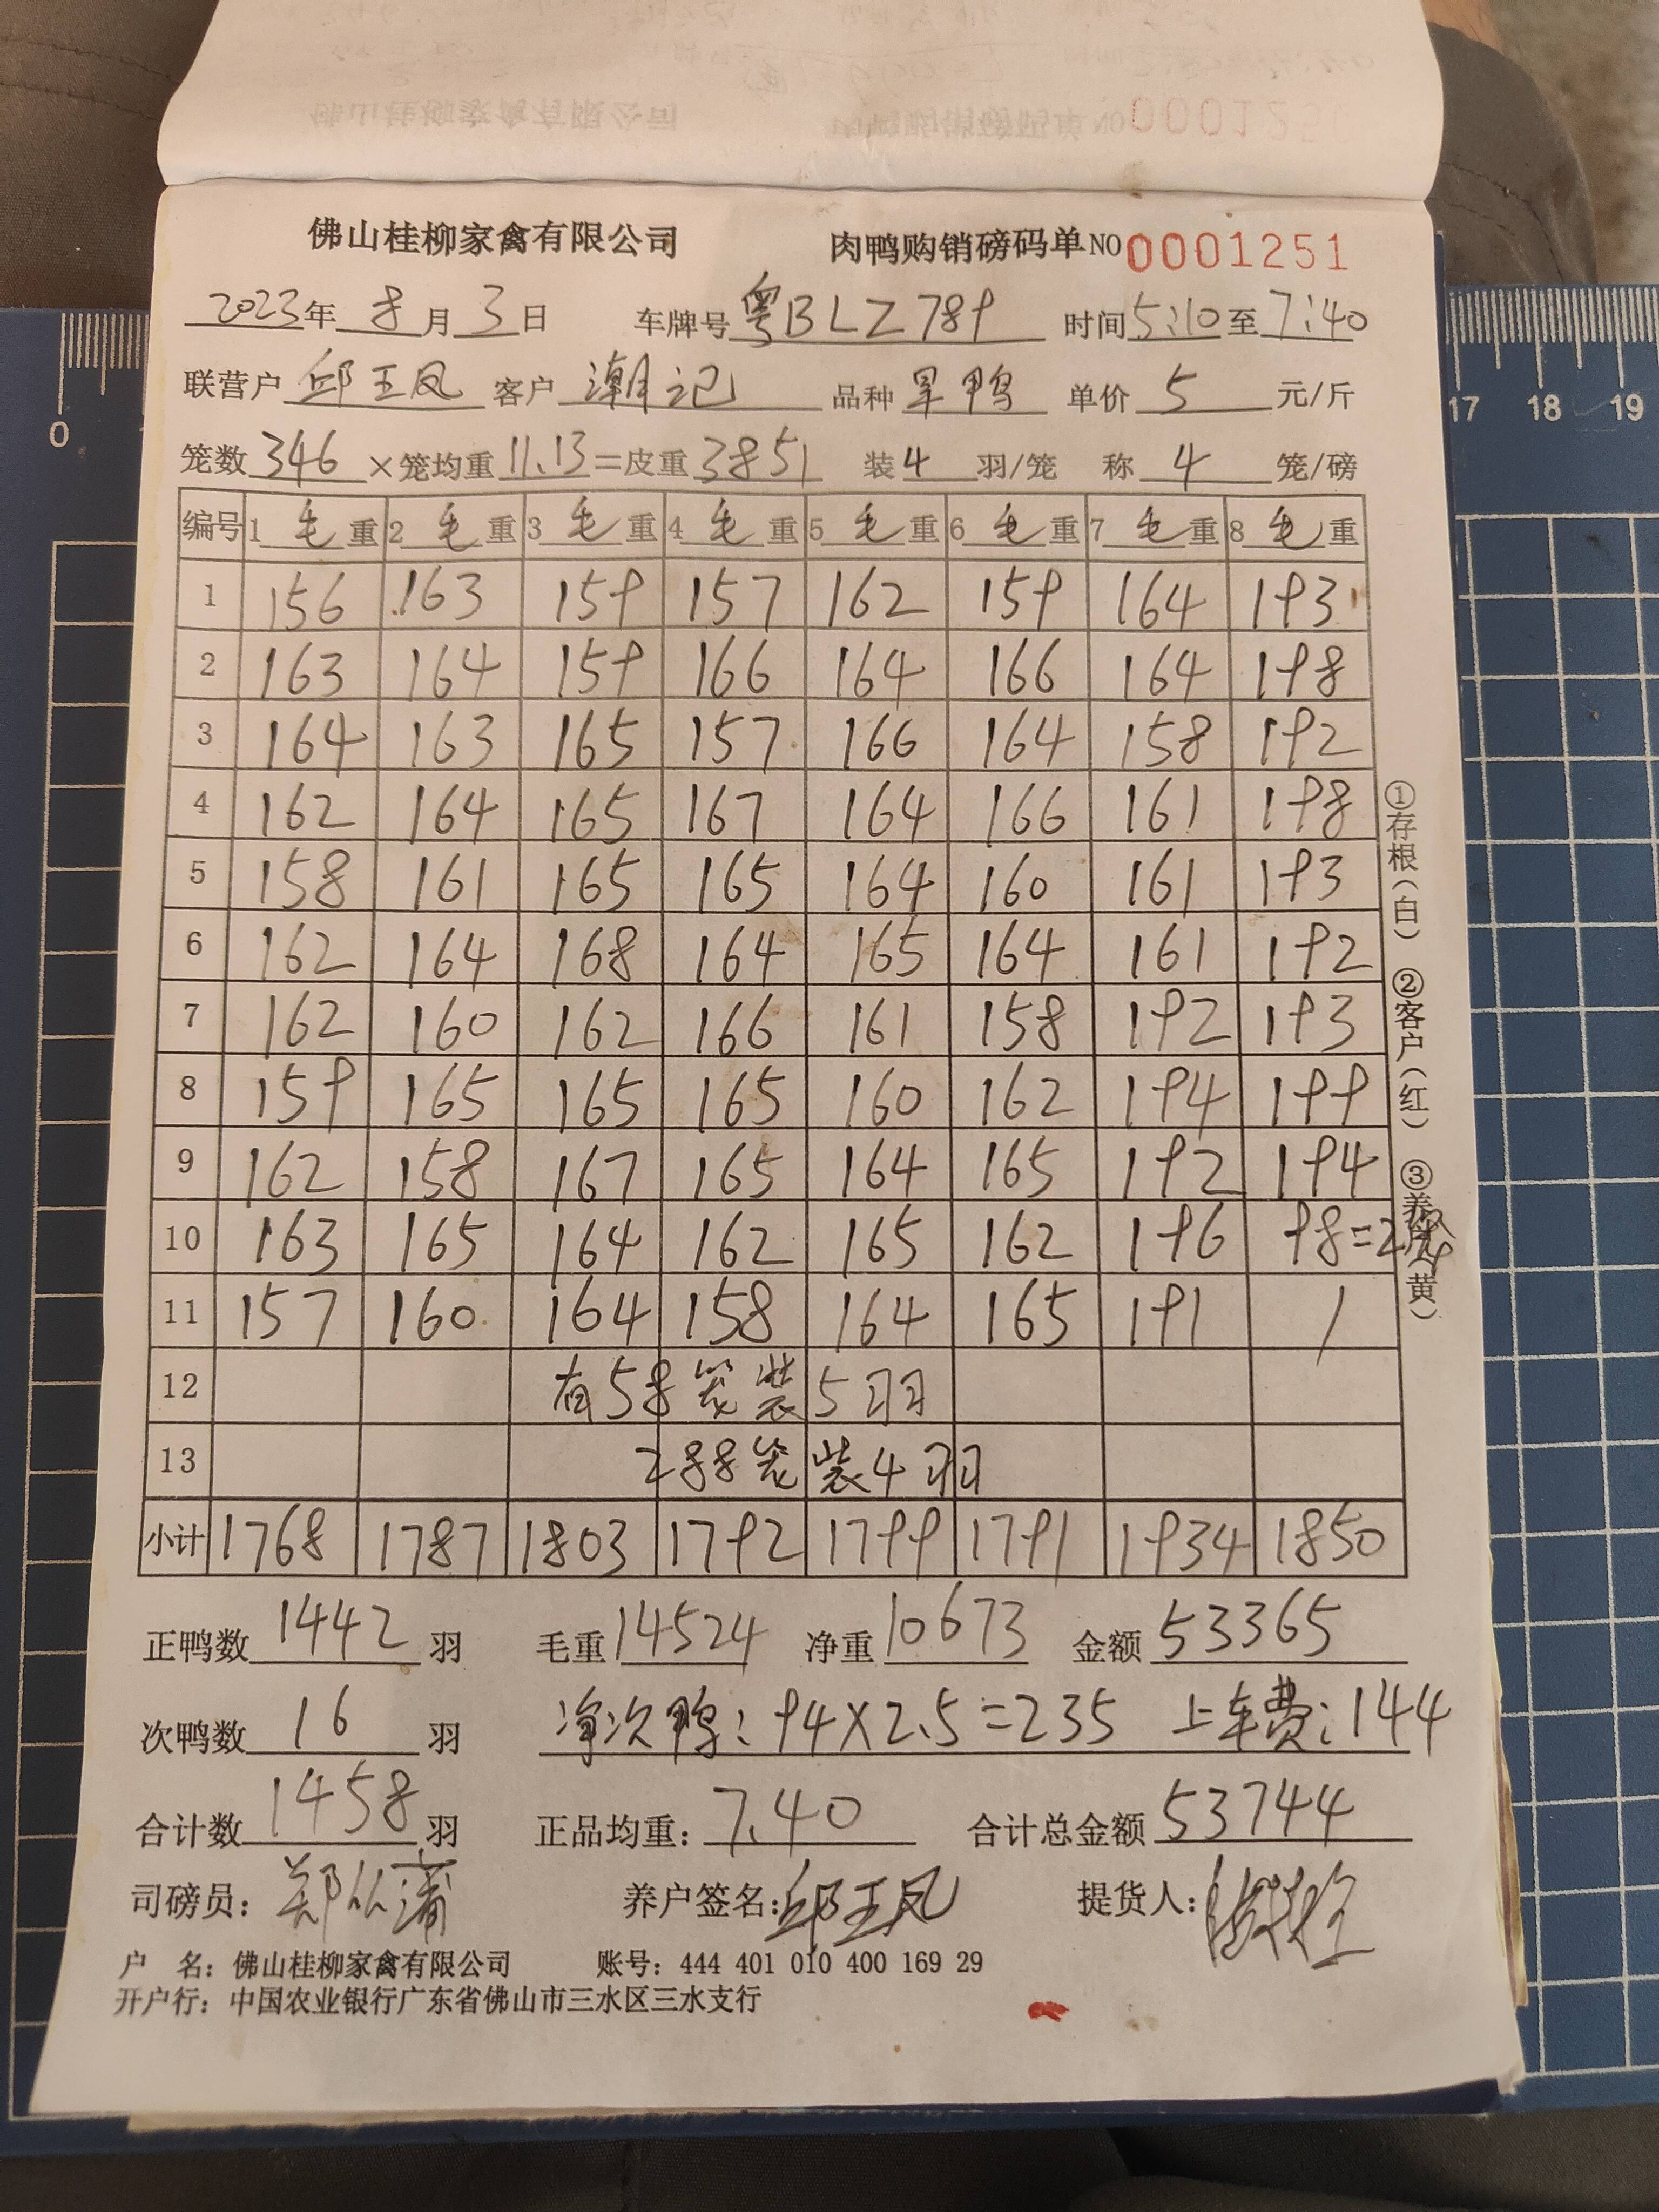 佛山桂柳家禽有限公司 肉鸭购销磅码单 NO 0001251
2023年 8月 3日 车牌号 粤BLZ789 时间 5:10 至 7:40
联营户 邱王凤 客户 潮记 品种 旱鸭 单价 5 元/斤
笼数 346 ×笼均重 11.13 =皮重 3851 装 4 羽/笼 称 4 笼/磅
编号 1 毛重 2 毛重 3 毛重 4 毛重 5 毛重 6 毛重 7 毛重 8 毛重
1 156 163 159 157 162 159 164 193
2 163 164 159 166 164 166 164 198
3 164 163 165 157 166 164 158 192
4 162 164 165 167 164 166 161 198
5 158 161 165 165 164 160 161 193
6 162 164 168 164 165 164 161 192
7 162 160 162 166 161 158 192 193
8 159 165 165 165 160 162 194 199
9 162 158 167 165 164 165 192 194
10 163 165 164 162 165 162 196 98=2
11 157 160 164 158 164 165 191 /
12 有58笼装5羽
13 288笼装4羽
小计 1768 1787 1803 1792 1799 1791 1934 1850
正鸭数 1442 羽 毛重 14524 净重 10673 金额 53365
次鸭数 16 羽 净次鸭:94×2.5=235 上车费:144
合计数 1458 羽 正品均重: 7.40 合计总金额 53744
司磅员: 郑 养户签名: 邱王凤 提货人:
户 名: 佛山桂柳家禽有限公司 账号: 444 401 010 400 169 29
开户行: 中国农业银行广东省佛山市三水区三水支行
①存根(白) ②客户(红) ③养户(黄)
0 17 18 19